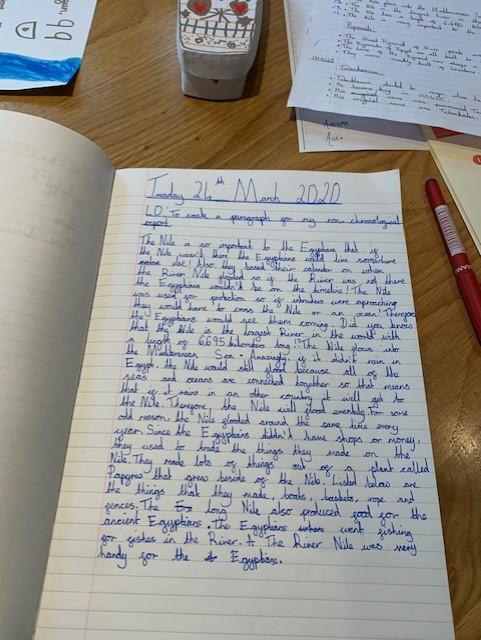 Tuesday 24th March 2020
LO: To create a paragraph for my non chronological
report
The Nile is so important to the Egyptians that if
the Nile wasn't there the Egyptians would live somewhere
else! Also, they based their calander on when
the River Nile flooded so if the River was not there
the Egyptians wouldn't be on the timeline! The Nile
was used for protection so if intruders were aproaching
they would have to cross the Nile or an ocean! Therefore
the Egyptians would see them coming. Did you know
that the Nile is the longest River in the world with
a length of 6,695 kilometers long!! The Nile flows into
the Mediterranean Sea. Amazingly, if it didn't rain in
Egypt, the Nile would still flood because all of the
seas and oceans are connected together so that means
that if it rains in an other country it will get to
the Nile. Therefore, the Nile will flood eventaly. For some
odd reason, the Nile flooded around the same time every
year. Since the Egyptians didn't have shops or money,
they used to trade the things they made on the
Nile. They made lots of things out of a plant called
Papyrus that grew beside of the Nile. Listed below are
the things that they made, boats, baskets, rope and
fences. The long Nile also produced food for the
ancient Egyptians. The Egyptians went fishing
for fishes in the River. The River Nile was very
handy for the Egyptians.